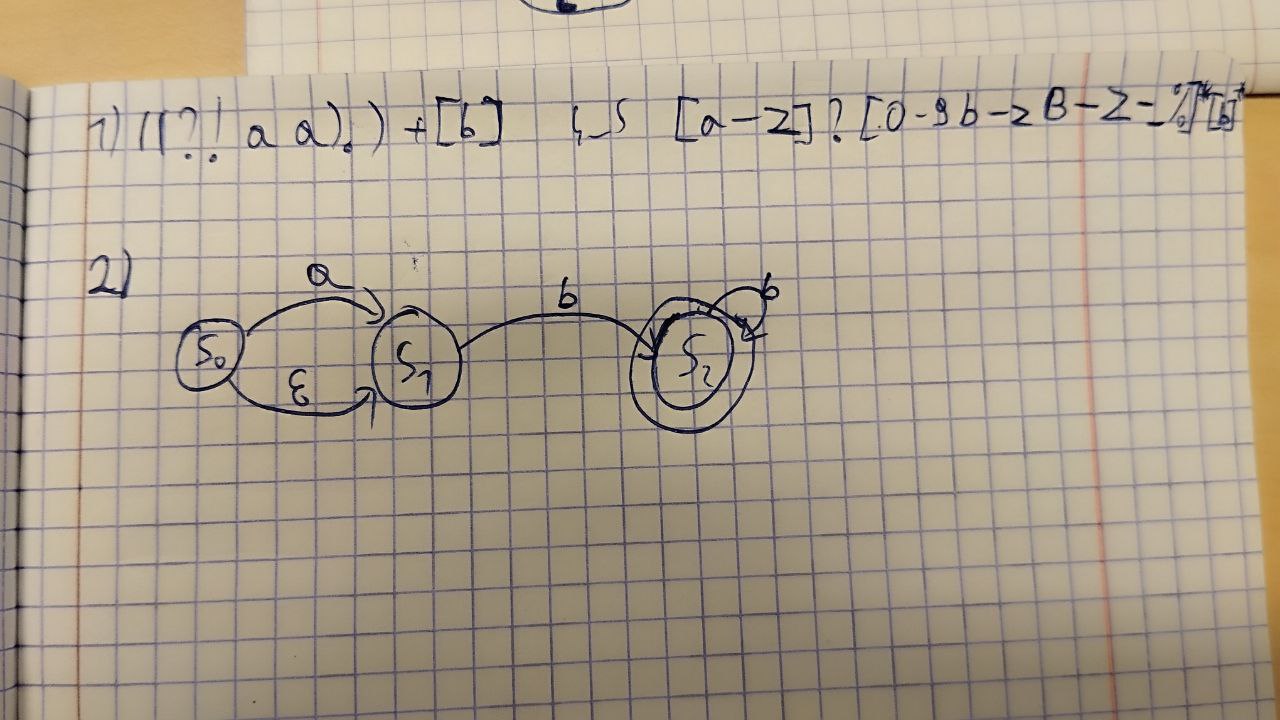 1) ((?! a a).)+[b] [a-z]?[0-9b-zB-Z-%]*[b]*
2)
a b b
S0 S1 S2
ε